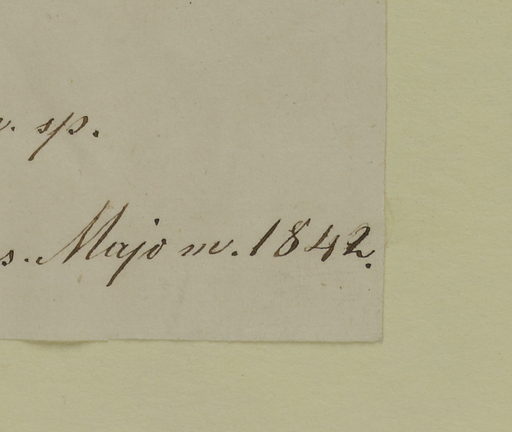 . sp.
s. Majo m. 1842.